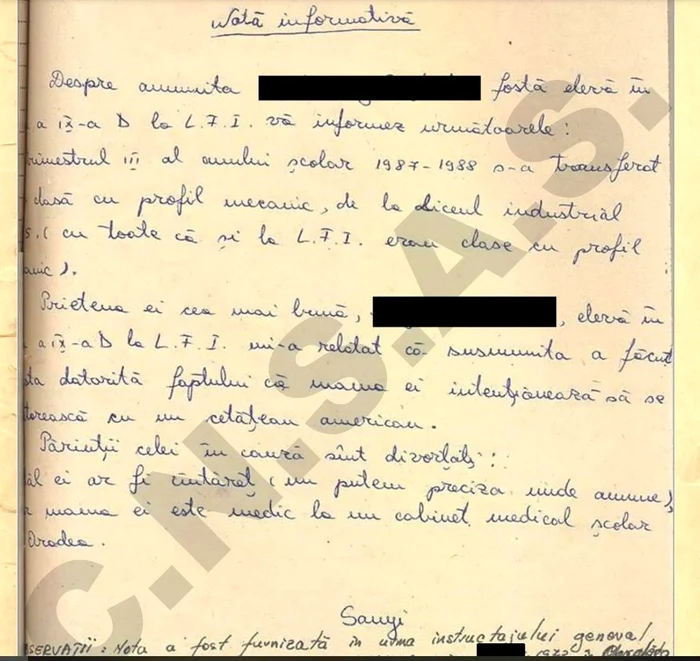 Notă informativă
Despre anumita fostă elevă în
a IX-a D la L.F.I. vă informez următoarele:
trimestrul III al anului școlar 1987-1988 s-a transferat
clasă cu profil mecanic, de la Liceul industrial
(cu toate că și la L.F.I. erau clase cu profil
anic).
Prietena ei cea mai bună, , elevă în
a IX-a D la L.F.I. mi-a relatat că susnumita a făcut
sta datorită faptului că mama ei intenționează să se
torească cu un cetățean american.
Părinții celei în cauză sînt divorțați:
ăl ei ar fi cîntăreț (nu putem preciza unde anume)
mama ei este medic la un cabinet medical școlar
Oradea.
Sanyi
SERVAȚII: Nota a fost furnizată în urma instructajului general
C.N.S.A.S.